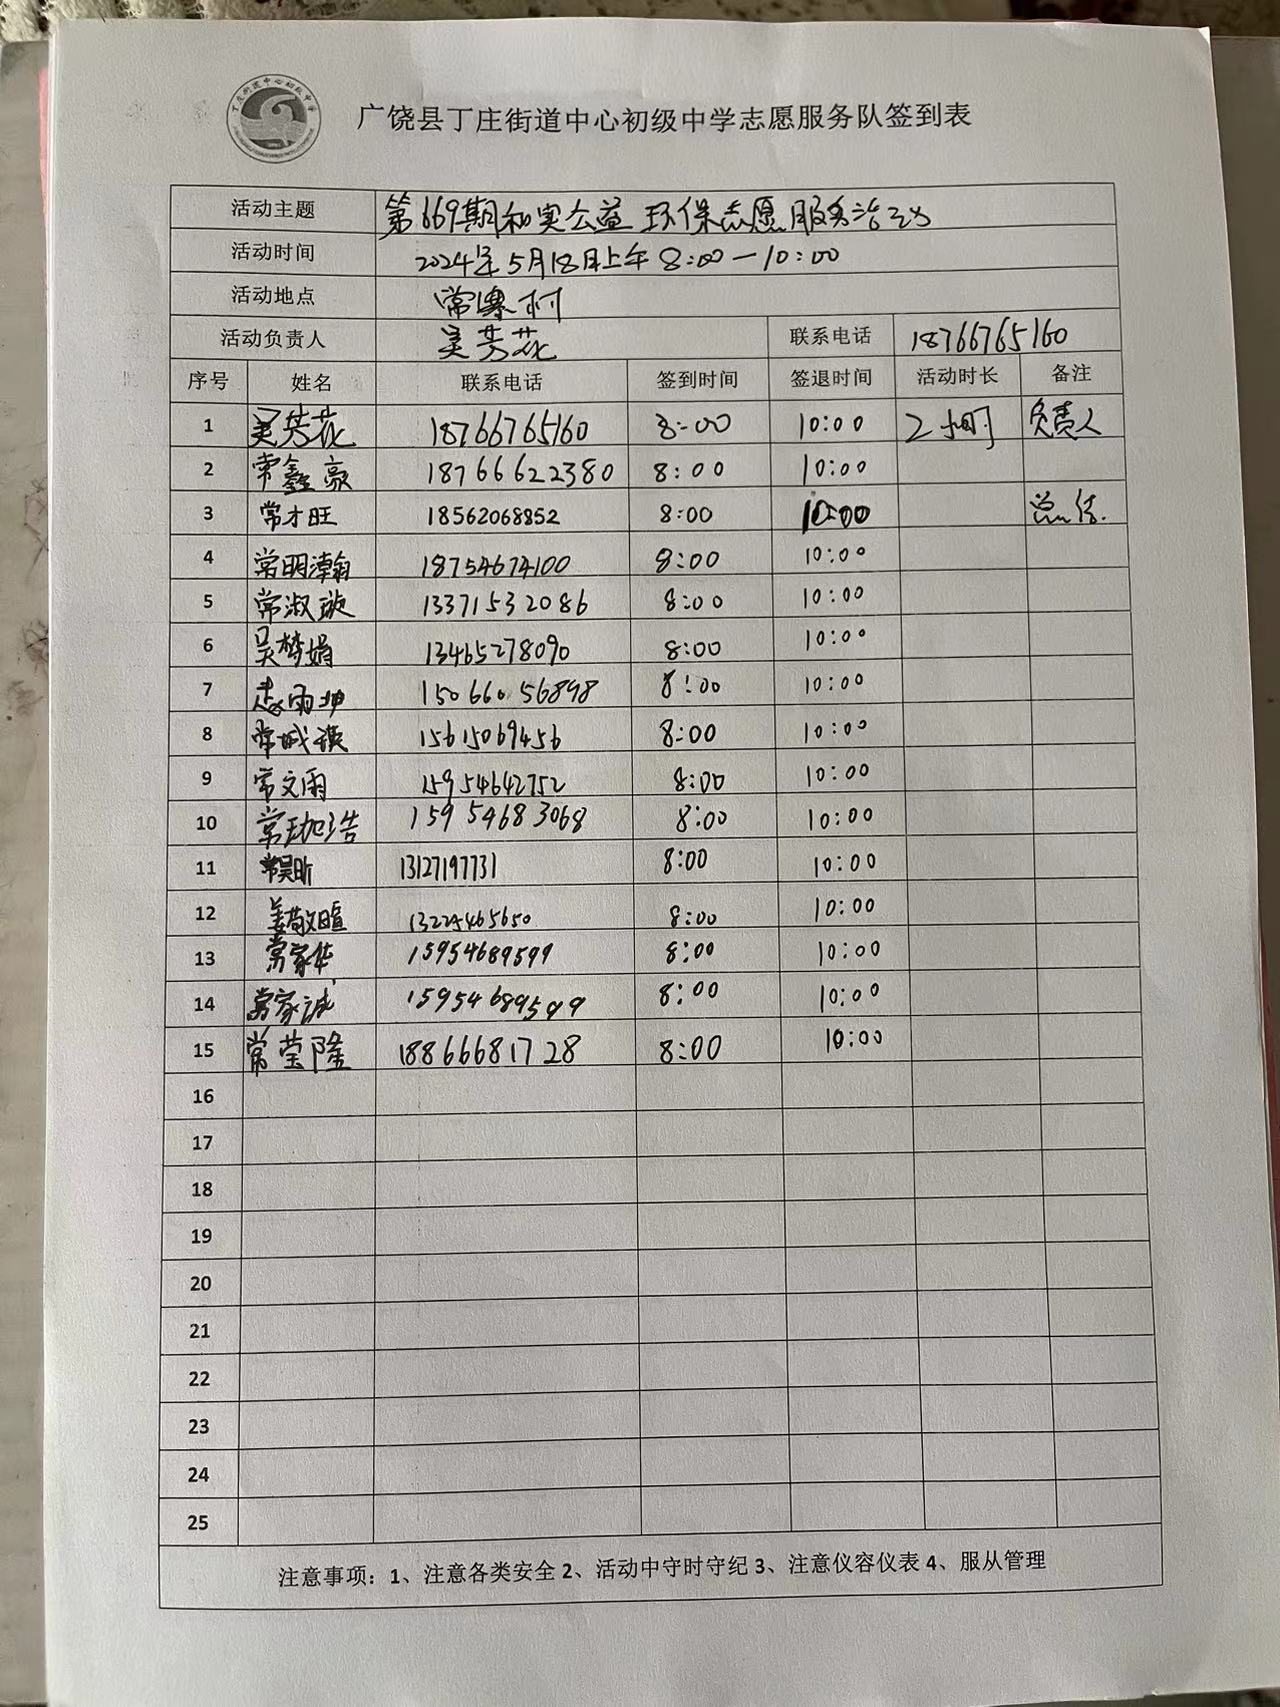 丁庄街道中心初级中学
广饶县丁庄街道中心初级中学志愿服务队签到表
活动主题 第669期和实公益环保志愿服务活动
活动时间 2024年5月18日上午8:00—10:00
活动地点 常寨村
活动负责人 吴芳花 联系电话 18766765160
序号 姓名 联系电话 签到时间 签退时间 活动时长 备注
1 吴芳花 18766765160 8:00 10:00 2小时 负责人
2 常鑫豪 18766622380 8:00 10:00
3 常才旺 18562068852 8:00 10:00 总结.
4 常明瀚 18754674100 8:00 10:00
5 常淑璇 13371532086 8:00 10:00
6 吴梦娟 13465278090 8:00 10:00
7 雨坤 15066056898 8:00 10:00
8 常城 15615069456 8:00 10:00
9 常文雨 15954642752 8:00 10:00
10 常珈浩 15954683068 8:00 10:00
11 常昊昕 13127197731 8:00 10:00
12 姜敬暄 8:00 10:00
13 常家华 15954689599 8:00 10:00
14 常家诚 15954689599 8:00 10:00
15 常莹隆 18866681728 8:00 10:00
16
17
18
19
20
21
22
23
24
25
注意事项：1、注意各类安全 2、活动中守时守纪 3、注意仪容仪表 4、服从管理